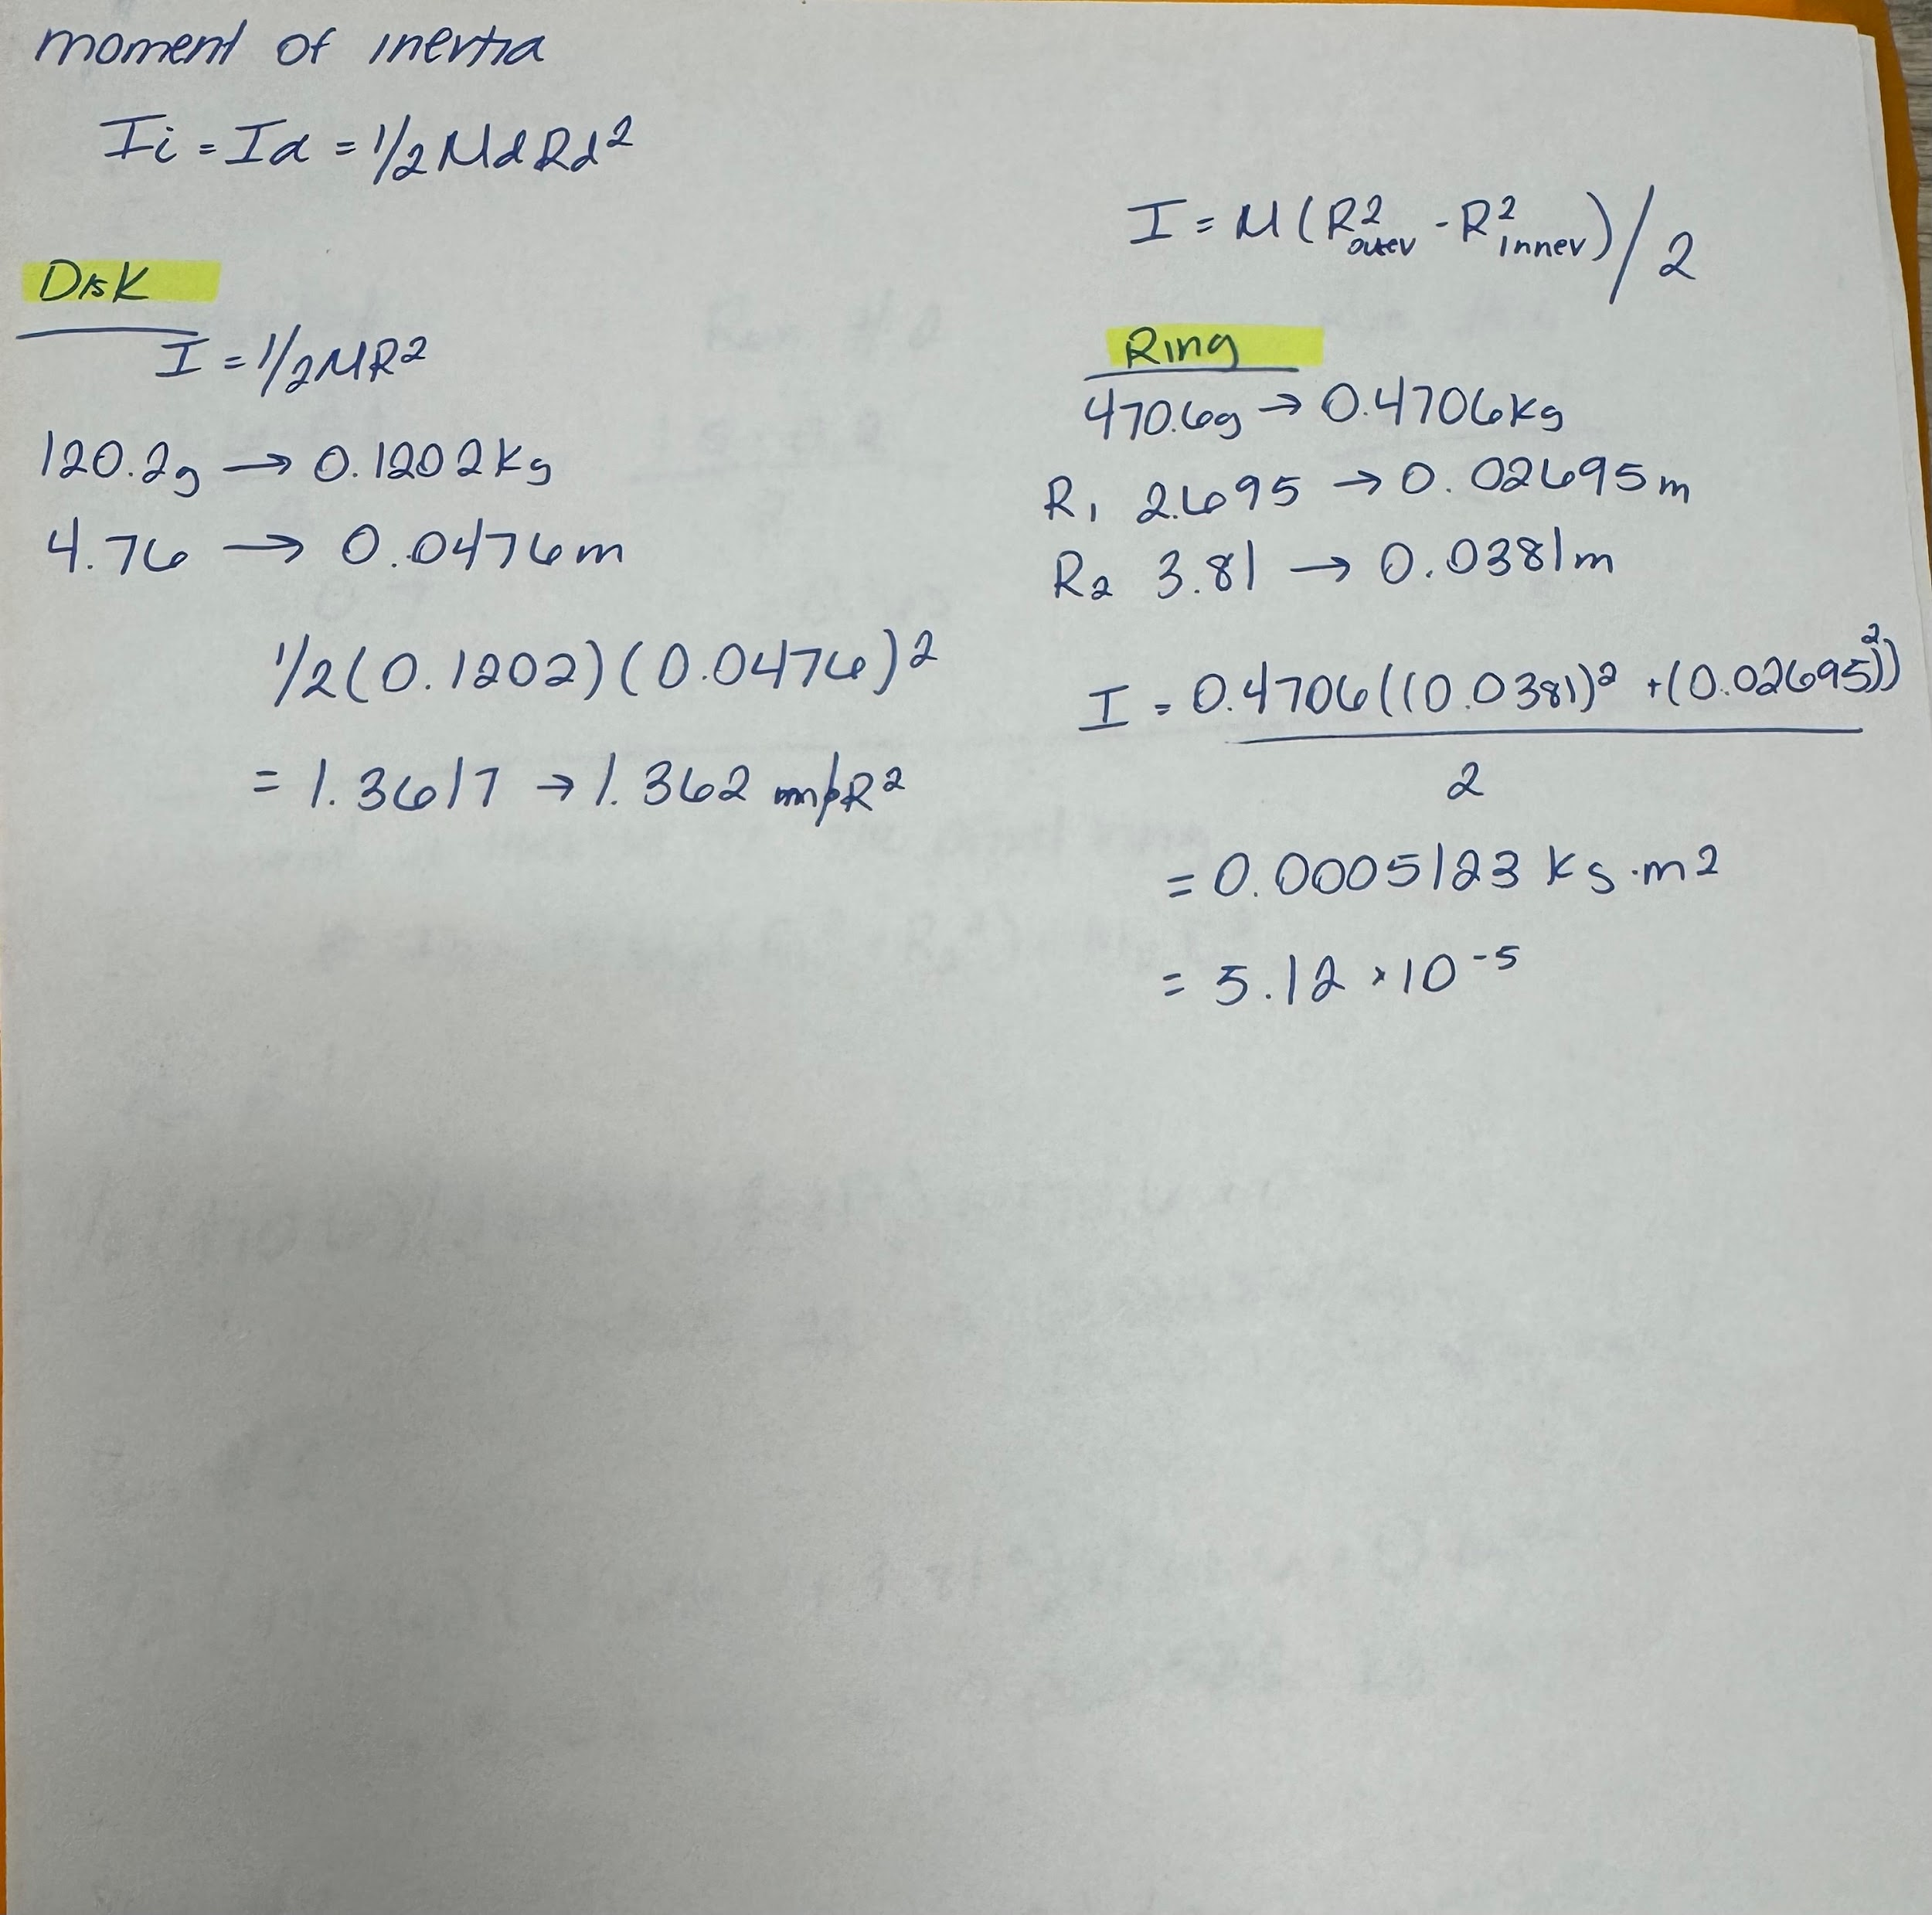 moment of inertia
Ii = Id = 1/2 Md Rd²
Disk
I = 1/2 MR²
120.2g → 0.1202kg
4.76 → 0.0476m
1/2(0.1202)(0.0476)²
= 1.3617 → 1.362 R²
I = M(R²outer - R²inner)/2
Ring
470.6g → 0.4706kg
R₁ 2.695 → 0.02695m
R₂ 3.81 → 0.0381m
I = 0.4706((0.0381)² + (0.02695)²)
2
= 0.0005123 kg·m2
= 5.12 × 10⁻⁵